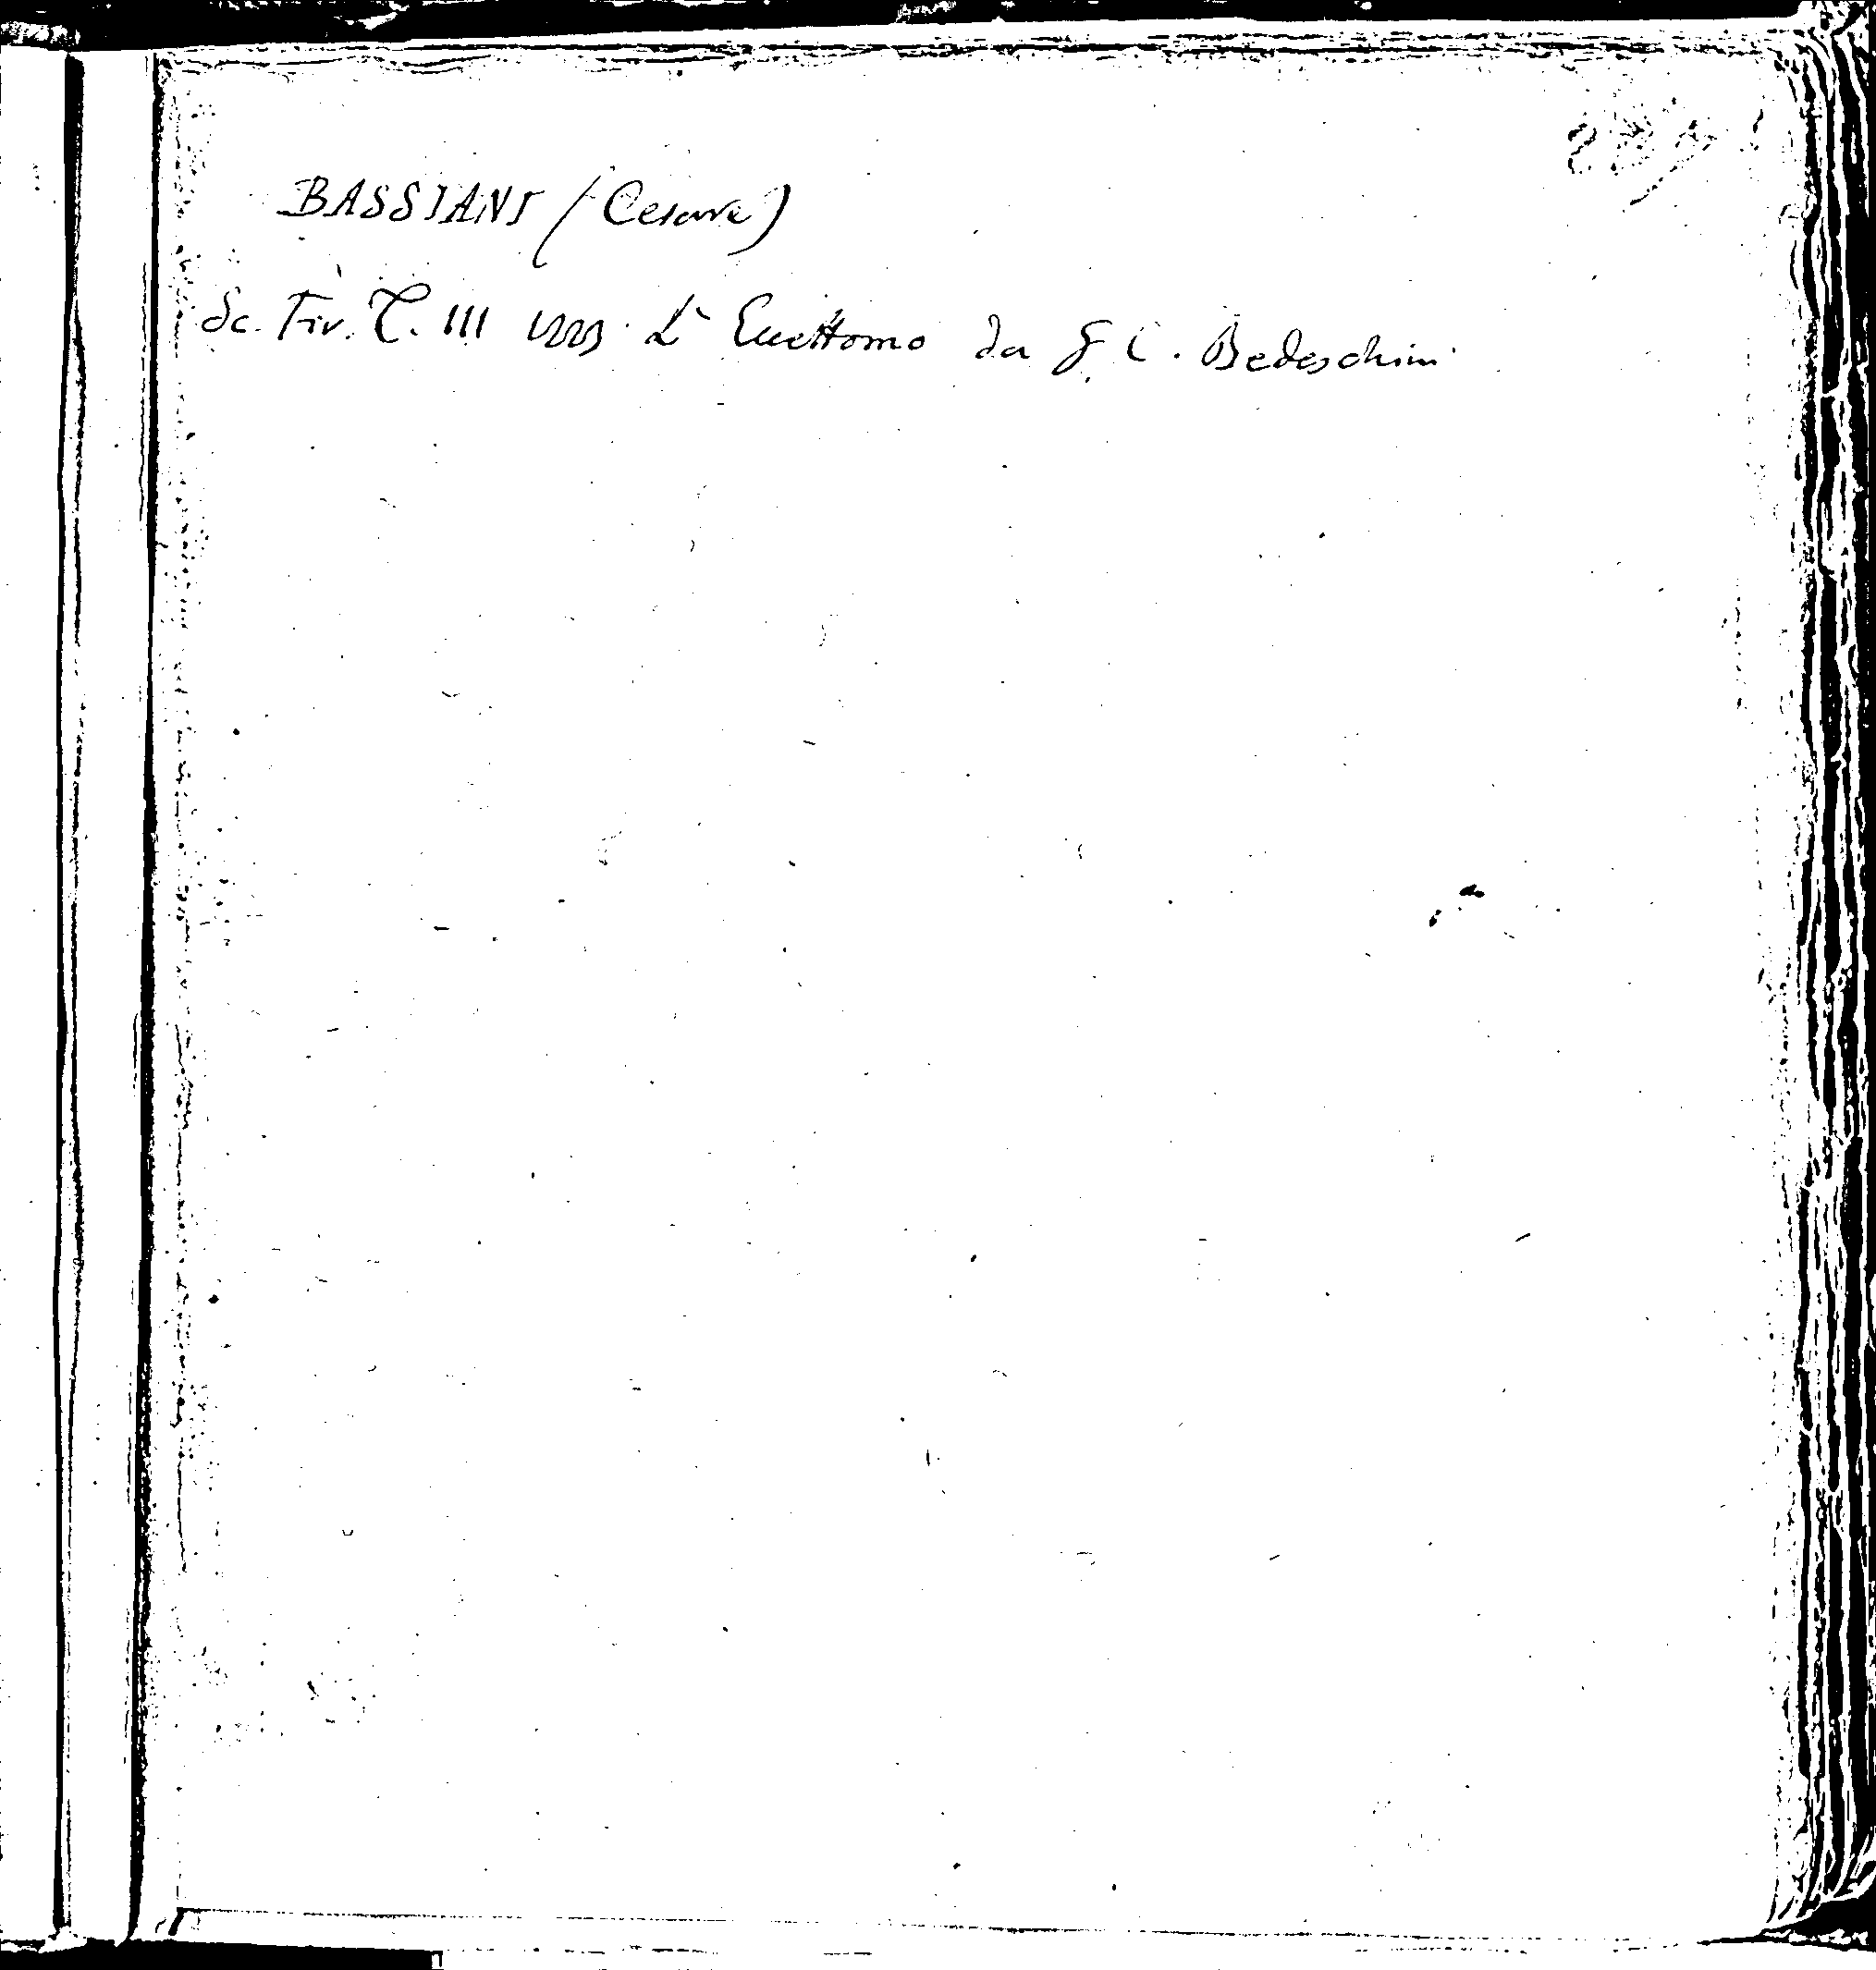 BASSIANI (Cesare)
Sc. Fir. T. III L' Eccettomo da G. C. Bedeschini